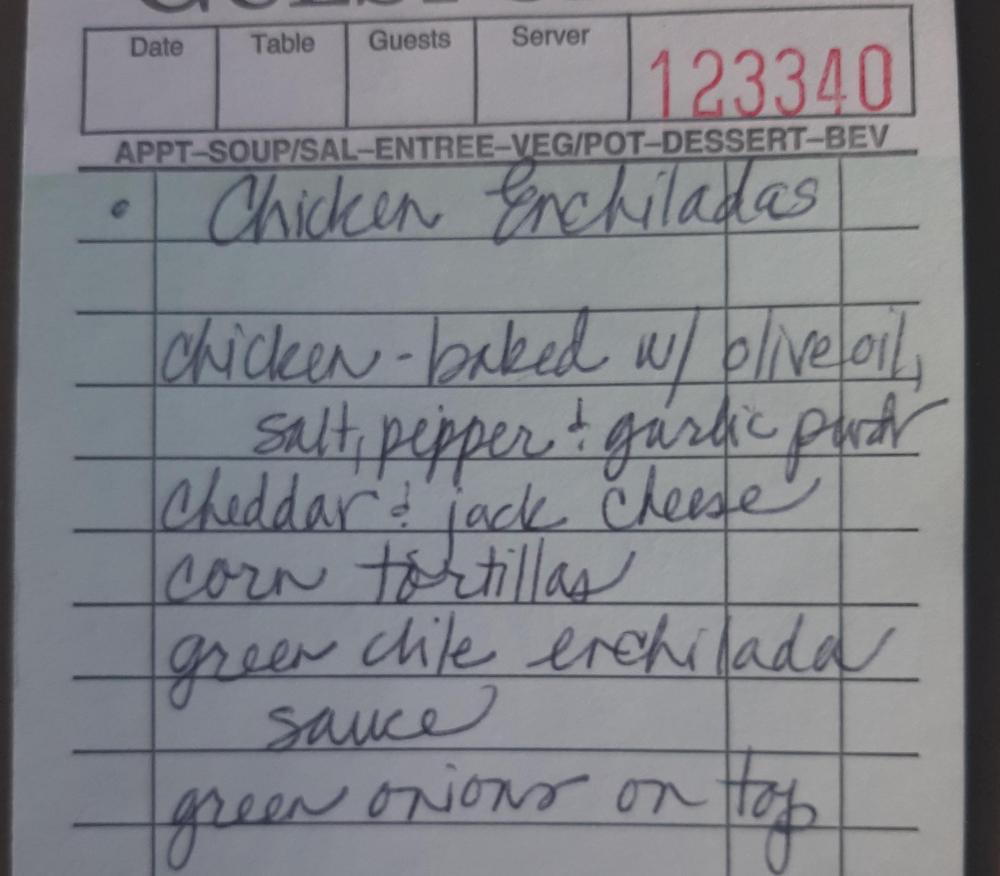 Date Table Guests Server 123340
APPT–SOUP/SAL–ENTREE–VEG/POT–DESSERT–BEV
• Chicken Enchiladas
chicken - baked w/ olive oil,
salt, pepper & garlic pwdr
cheddar & jack cheese
corn tortillas
green chile enchilada
sauce
green onions on top